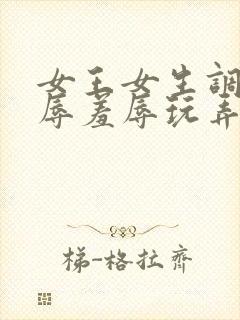 女王女生調
辱羞辱玩弄
梯-格拉齊